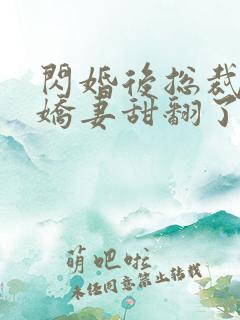 閃婚後总裁
嬌妻甜翻了
萌吧啦
未经同意禁止转载